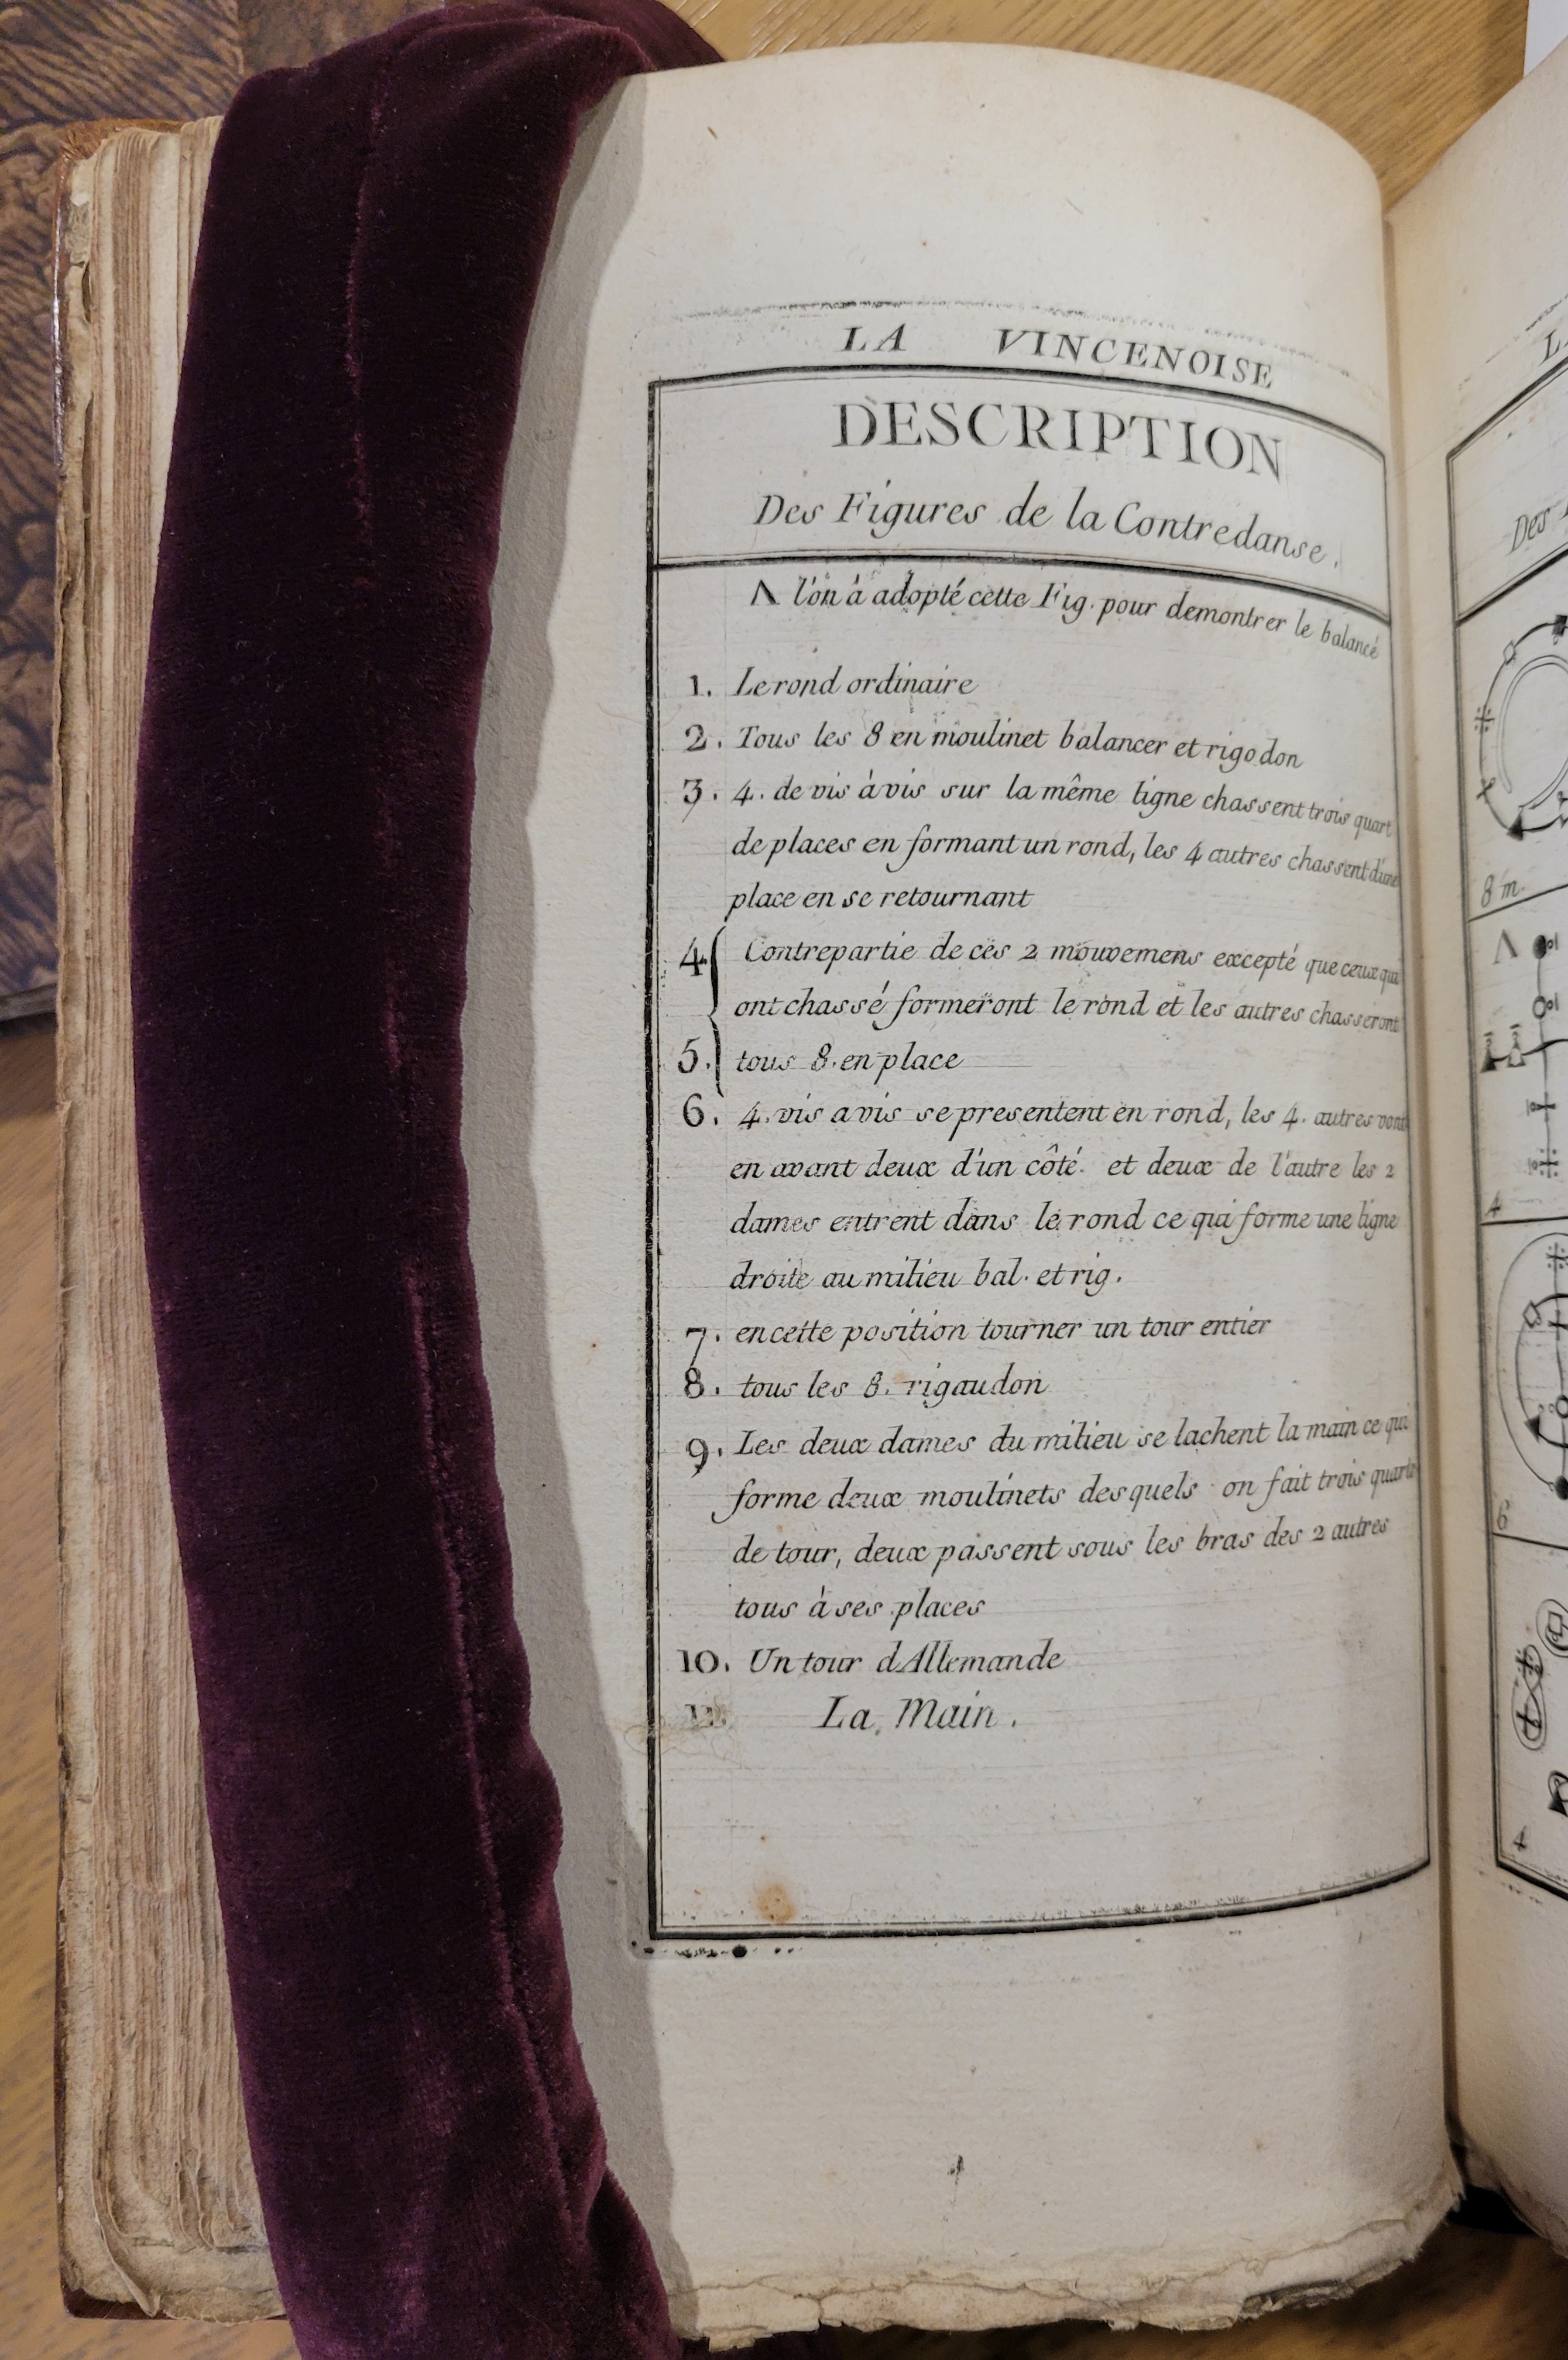 LA VINCENOISE
DESCRIPTION
Des Figures de la Contredanse.
Λ l'on à adopté cette Fig. pour demontrer le balancé
1. Le rond ordinaire
2. Tous les 8 en moulinet balancer et rigodon
3. 4. de vis à vis sur la même ligne chassent trois quart
de places en formant un rond, les 4 autres chassent d'une
place en se retournant
4. Contrepartie de ces 2 mouvemens excepté que ceux qui
ont chassé formeront le rond et les autres chasseront
5. tous 8. en place
6. 4. vis a vis se presentent en rond, les 4. autres vont
en avant deux d'un côté. et deux de l'autre les 2
dames entrent dans le rond ce qui forme une ligne
droite au milieu bal. et rig.
7. en cette position tourner un tour entier
8. tous les 8. rigaudon
9. Les deux dames du milieu se lachent la main ce qui
forme deux moulinets desquels on fait trois quarts
de tour, deux passent sous les bras des 2 autres
tous à ses places
10. Un tour d'Allemande
La Main.
Des
8 m
Λ
4
6
4